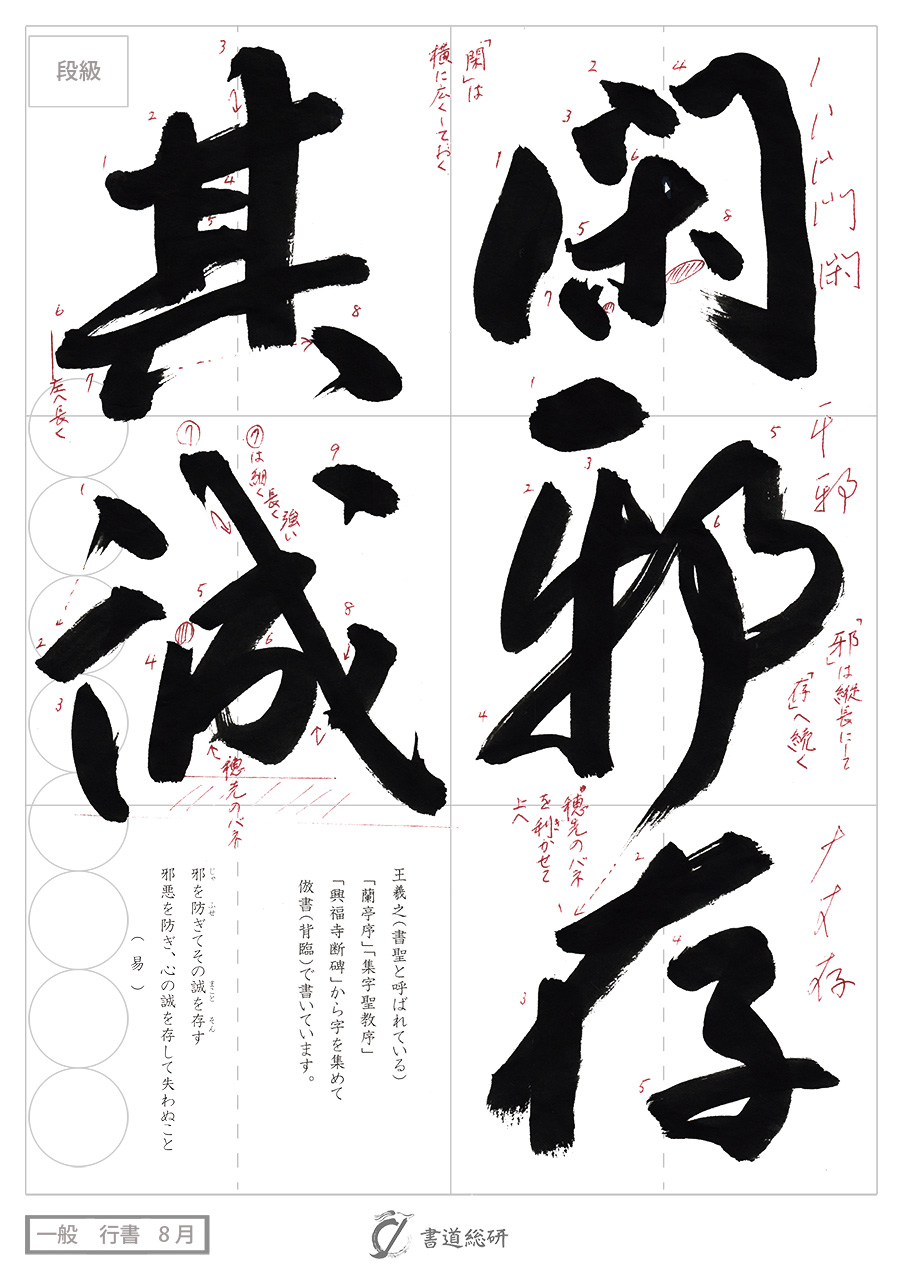 段級
閑邪存
其誠
「閑」は
横に広くしておく
左へ長く
「邪」は縦長にして
「存」へ続く
穂先のバネ
を利かせて
上へ
⑦は細く
長く
強い
穂先のバネ
王羲之(書聖と呼ばれている)
「蘭亭序」「集字聖教序」
「興福寺断碑」から字を集めて
倣書(背臨)で書いています。
邪を防ぎてその誠を存す
邪悪を防ぎ、心の誠を存して失わぬこと
(易)
一般 行書 8月
書道総研